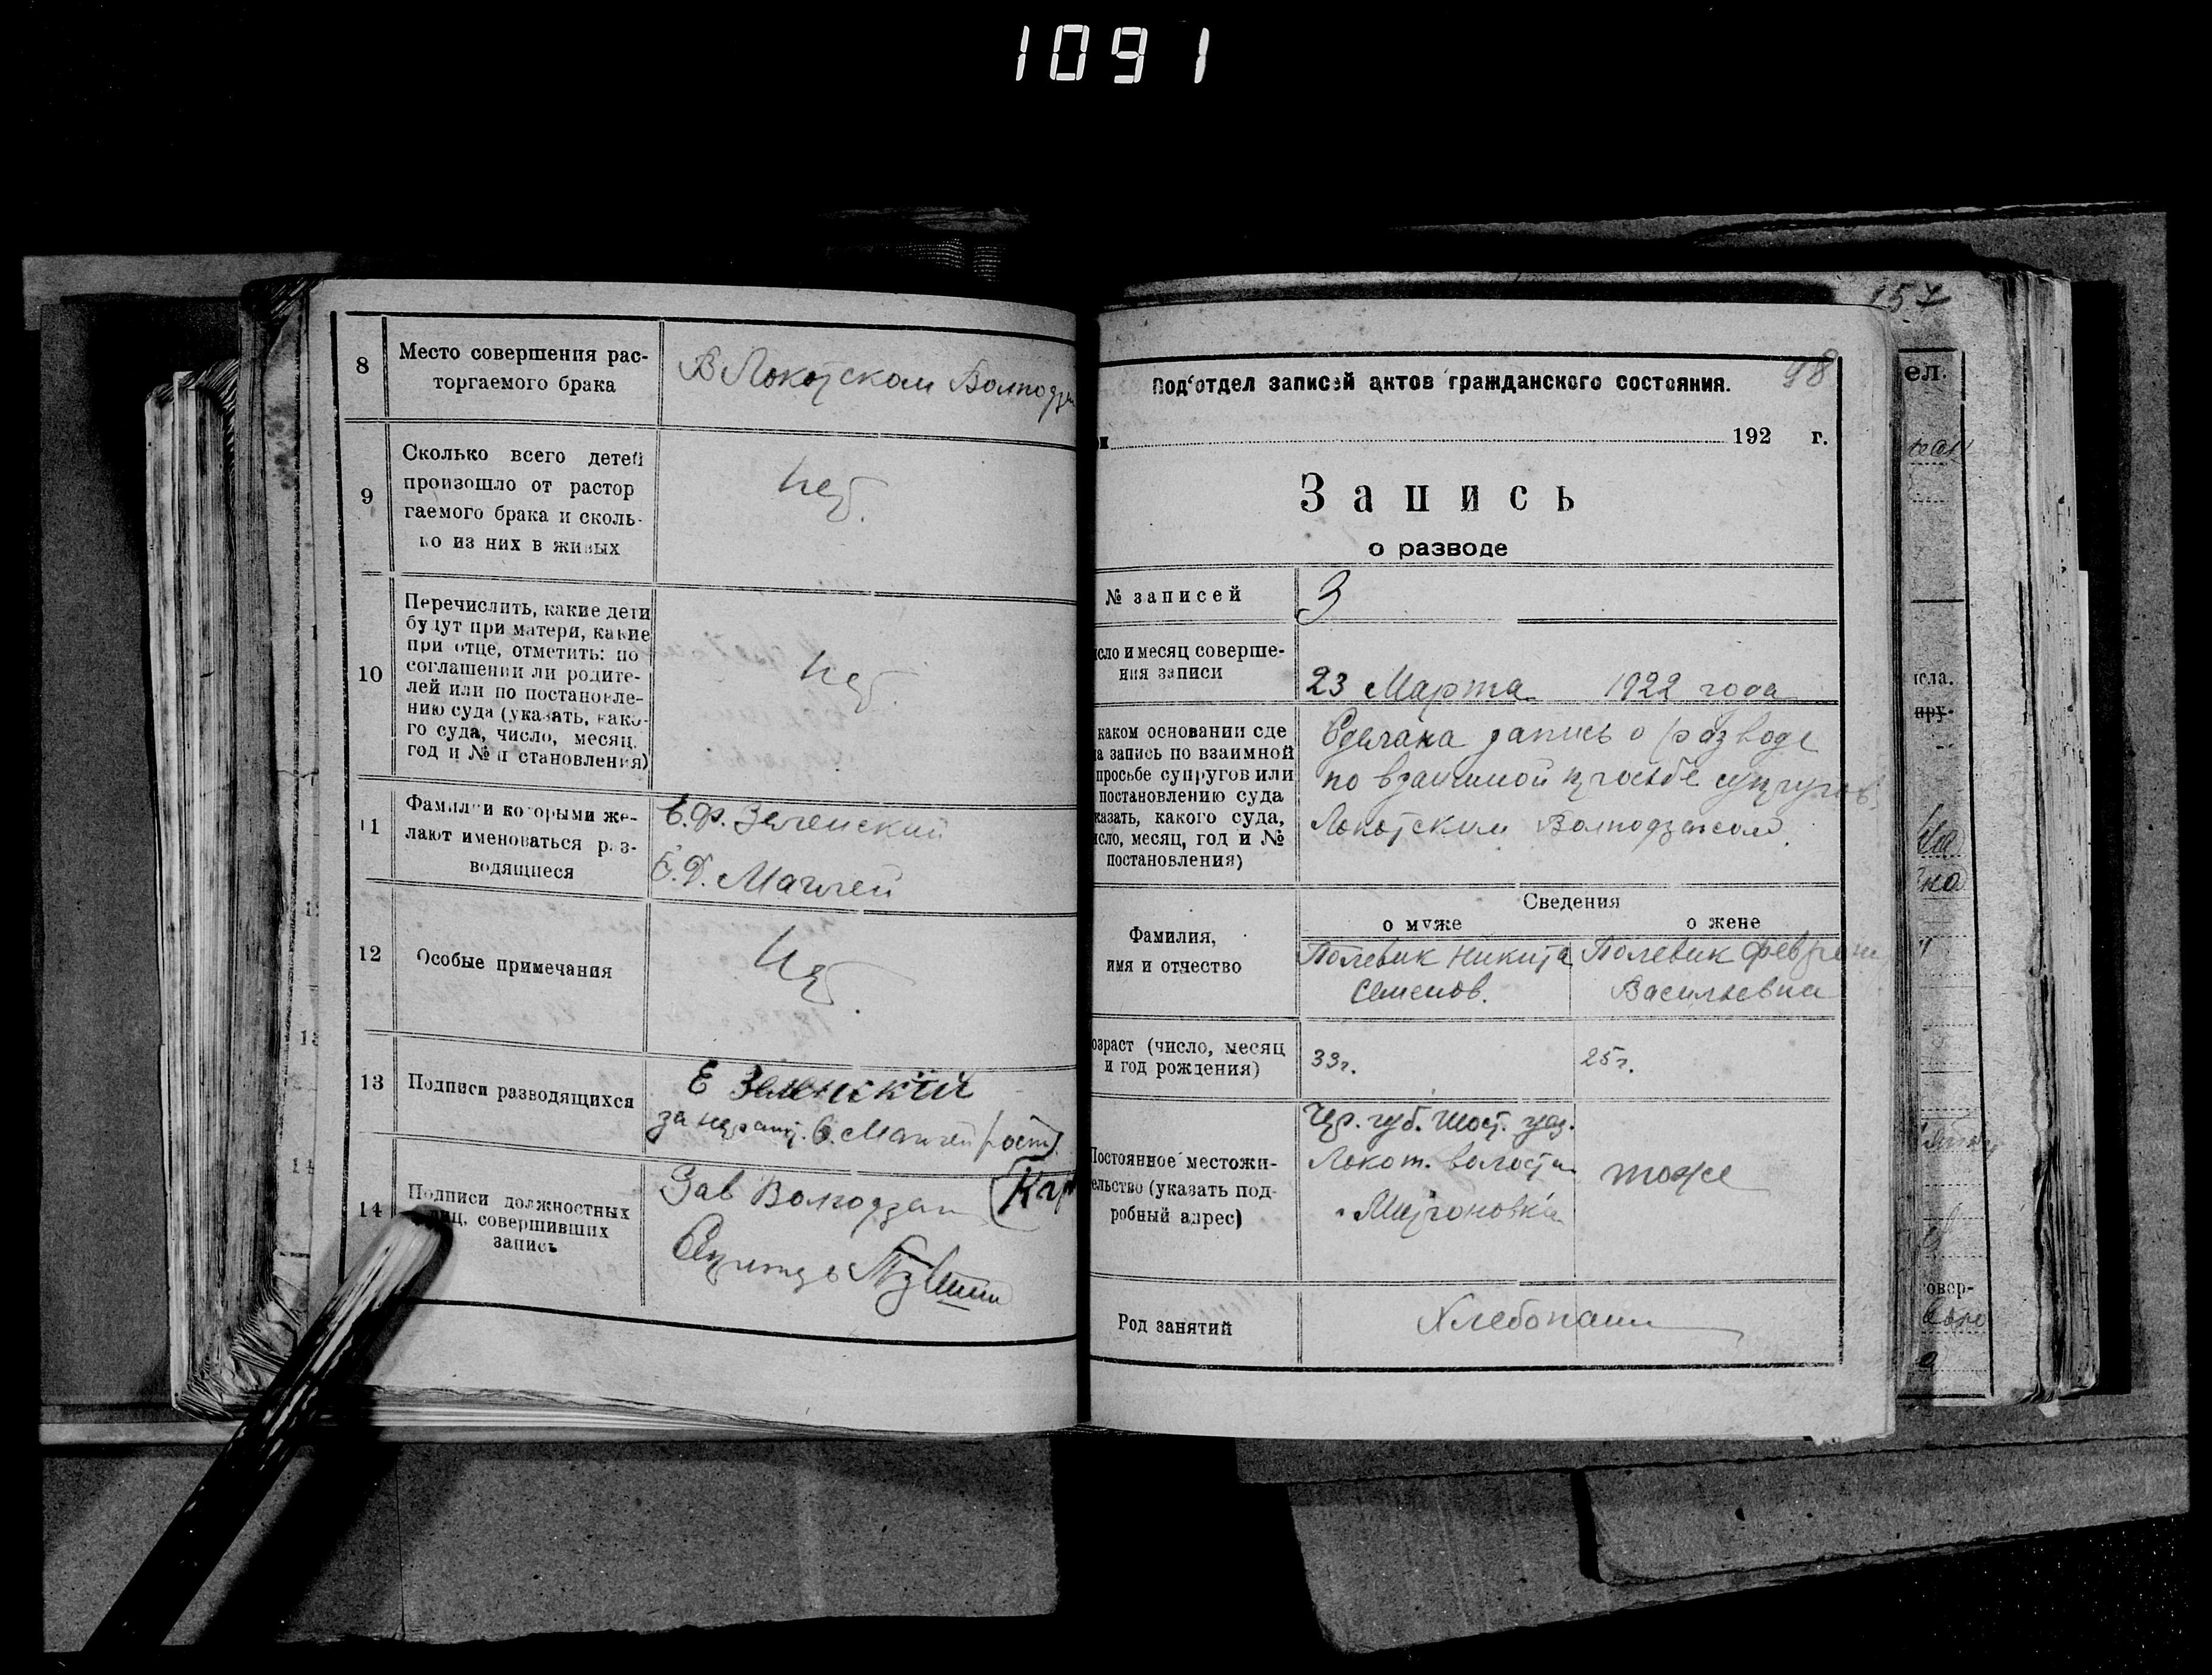 1091
8
Место совершения рас-
торгаемого брака
В Локотском
9
Сколько всего детей
произошло от растор
гаемого брака и сколь-
ко из них в живых
Нет.
10
Перечислить, какие дети
будут при матери, какие
при отце, отметить: по
соглашении ли родите-
лей или по постановле-
нию суда (указать, како-
го суда, число, месяц.
год и № п становления)
Нет.
11
Фамилии которыми же-
лают именоваться раз-
водящиеся
Е.Ф. Зеленский
Е.Д.
12
Особые примечания
Нет.
13
Подписи разводящихся
Е Зеленский
за
14
Подписи должностных
лиц, совершивших
запись
Зав
157
98
Под'отдел записей актов гражданского состояния.
192 г.
Запись
о разводе
№ записей
3
исло и месяц соверше-
ния записи
23 Марта 1922 года
каком основании сде
на запись по взаимной
просьбе супругов или
постановлению суда
казать, какого суда,
исло, месяц, год и №
постановления)
Сделана запись о разводе
по взаимной просьбе супругов
Локотским
Сведения
о муже
о жене
Фамилия,
имя и отчество
Полевик Никита
Семенов.
Полевик
Васильевна
озраст (число, месяц
и год рождения)
33г.
25г.
Постоянное местожи-
ельство (указать под-
робный адрес)
Чер. губ. Шост. уез.
Локот. волости
тоже
Род занятий
Хлебопаш
ел.